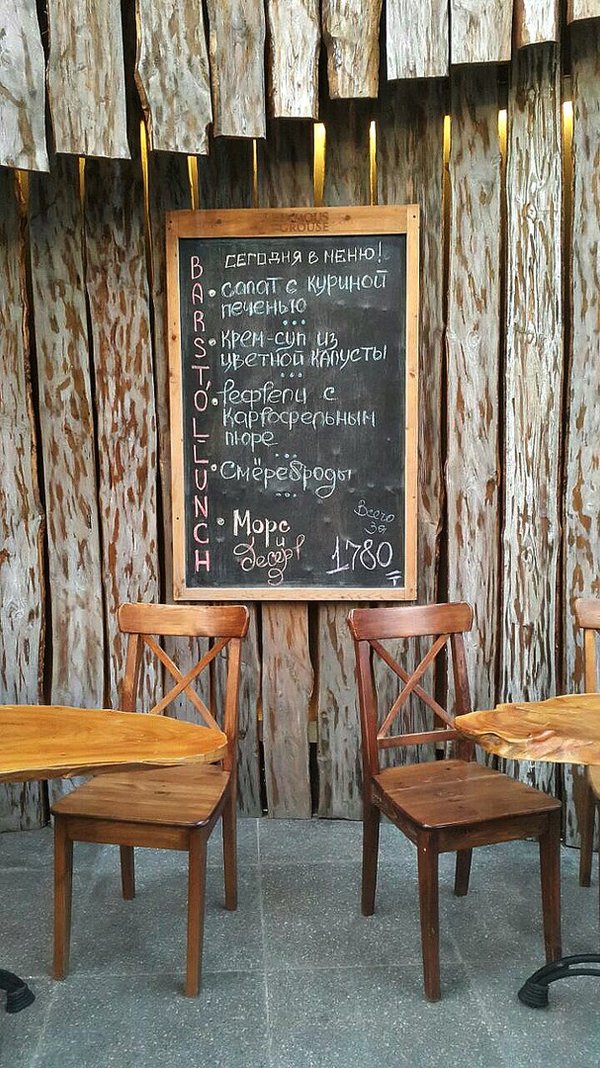 FAMOUS
GROUSE
BARSTÓL LUNCH
СЕГОДНЯ В МЕНЮ!
• салат с куриной
печенью
• Крем-суп из
цветной капусты
• Тефтели с
картофельным
пюре
• Смёреброды
• Морс
и
десерт
Всего
за
1780 ₸